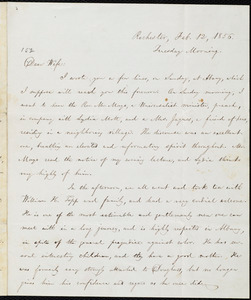 Rochester, Feb. 12, 1856.
Tuesday Morning.
152
Dear Wife:
I wrote you a few lines, on Sunday, at Albany, which
I suppose will reach you this forenoon. On Sunday morning, I
went to hear the Rev. Mr. Mayo, a Universalist minister, preach,
in company with Lydia Mott, and a Miss Jaques, a friend of hers,
residing in a neighboring village. His discourse was an excellent
one, breathing an elevated and reformatory spirit throughout. Mr.
Mayo read the notice of my evening lecture, and Lydia thinks
very highly of him.
In the afternoon, we all went and took tea with
William H. Topp and family, and had a very cordial interview.
He is one of the most estimable and gentlemanly men one can
meet with in a long journey, and is highly respected in Albany,
in spite of the general prejudice against color. He has several
interesting children, and they have a good mother. He
was formerly very strongly attached to Douglass, but no longer
gives him his confidence and regard as he once did.